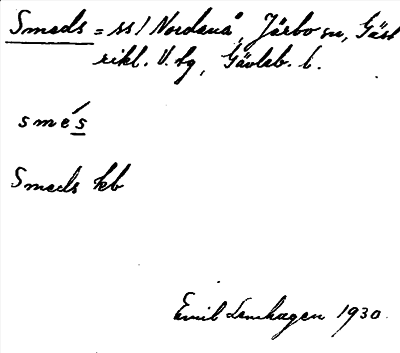 Smeds = ss! Nordanå, Järbo sn, Gäst
rikl. V. fg, Gävleb. l.
smés
Smeds kb
Emil Lenhagen 1930.